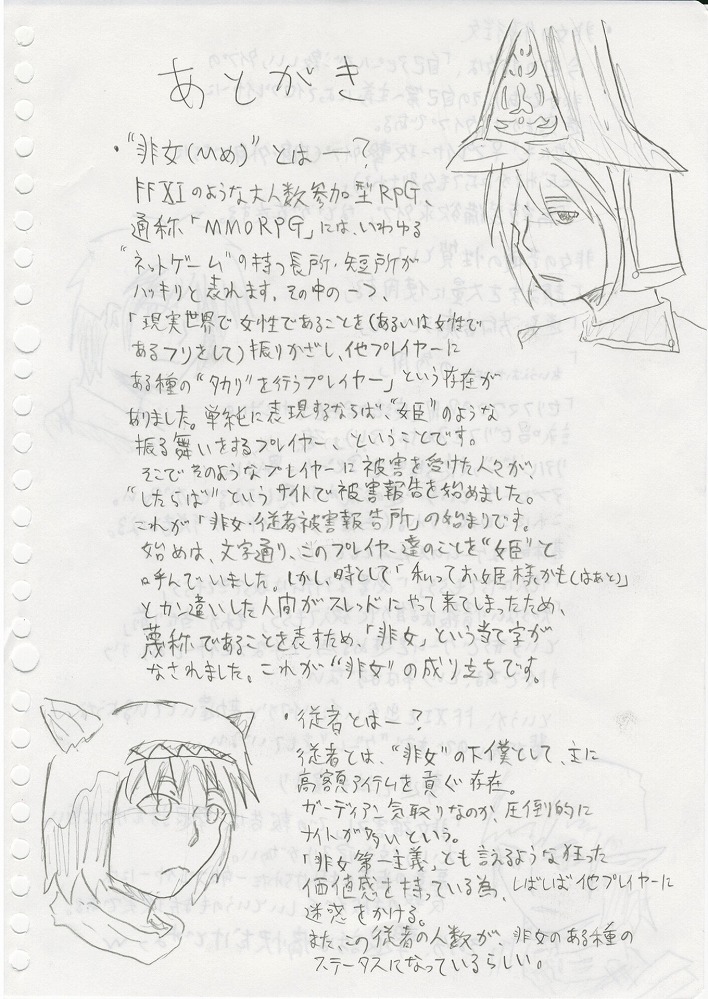 あとがき
・“非女(ひめ)”とは―?
FFXIのような大人数参加型RPG、
通称「MMORPG」には、いわゆる
“ネットゲーム”の持つ長所・短所が
ハッキリと表れます。その中の一つ、
「現実世界で女性であることを(あるいは女性で
あるフリをして)振りかざし、他プレイヤーに
ある種の“タカリ”を行うプレイヤー」という存在が
ありました。単純に表現するならば“女臣”のような
振る舞いをするプレイヤー、ということです。
そこでそのようなプレイヤーに被害を受けた人々が、
“したらば”というサイトで被害報告を始めました。
これが「非女・従者被害報告所」の始まりです。
始めは、文字通り、このプレイヤー達のことを“姫”と
呼んでいました。しかし、時として「私ってお姫様かも(はあと)」
とカン違いした人間がスレッドにやって来てしまったため、
蔑称であることを表すため、「非女」という当て字が
なされました。これが“非女”の成り立ちです。
・従者とは―?
従者とは、“非女”の下僕として、主に
高額アイテムを貢ぐ存在。
ガーディアン気取りなのか、圧倒的に
ナイトが多いという。
「非女第一主義」とも言えるような狂った
価値感を持っている為、しばしば他プレイヤーに
迷惑をかける。
また、この従者の人数が、非女のある種の
ステータスになっているらしい。